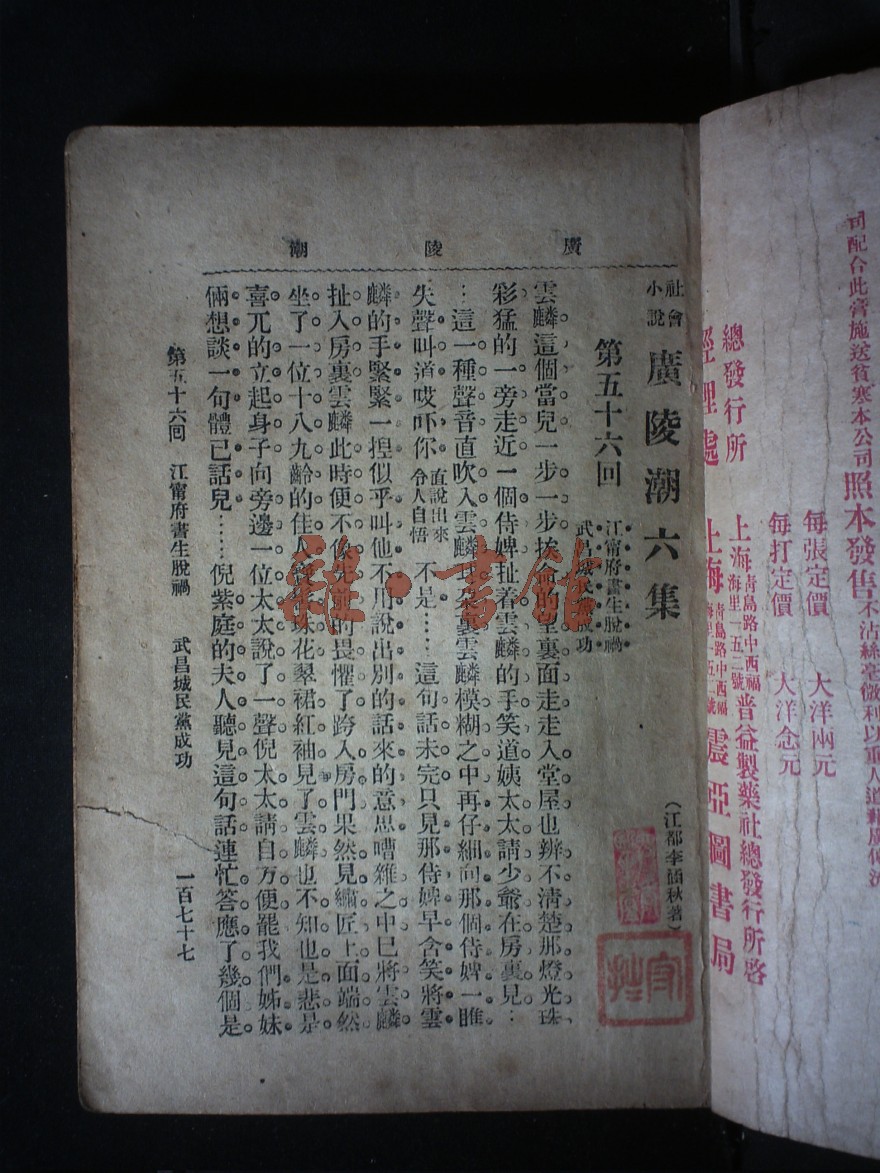 司配合此膏施送貧寒本公司照本發售不沾絲毫微利以重人道
每張定價　大洋兩元
每打定價　大洋念元
總發行所　上海青島路中西福海里一五二號普益製藥社總發行所啓
經理處　上海青島路中西福海里一五二號震亞圖書局
廣陵潮
社會小說　廣陵潮六集　（江都李涵秋著）
第五十六回　江甯府書生脫禍　武昌城民黨成功
雲麟這個當兒一步一步挨命的望裏面走走入堂屋也辨不清楚那燈光珠
彩猛的一旁走近一個侍婢扯着雲麟的手笑道姨太太請少爺在房裏見…
…這一種聲音直吹入雲麟耳朵裏雲麟模糊之中再仔細向那個侍婢一睢
失聲叫道哎吓你直說出來令人自悟不是……這句話未完只見那侍婢早含笑將雲
麟的手緊緊一揑似乎叫他不用說出別的話來的意思嘈雜之中已將雲麟
扯入房裏雲麟此時便不像先前的畏懼了跨入房門果然見繡匠上面端然
坐了一位十八九齡的佳人珠花翠裙紅袖見了雲麟也不知也是悲是
喜兀的立起身子向旁邊一位太太說了一聲倪太太請自方便罷我們姊妹
倆想談一句體已話兒……倪紫庭的夫人聽見這句話連忙答應了幾個是
第五十六回　江甯府書生脫禍　武昌城民黨成功　一百七十七
雅·書館